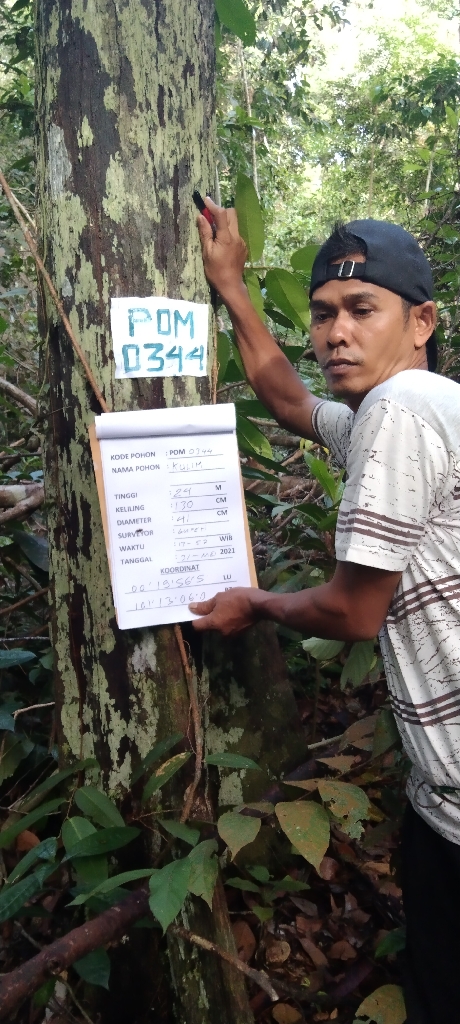 POM
0344
KODE POHON : POM 0344
NAMA POHON : KULIM
TINGGI : 24 M
KELILING : 130 CM
DIAMETER : 41 CM
SURVEYOR :
WAKTU : WIB
TANGGAL : 21-Mei 2021
KOORDINAT
00°19'56.5 LU
101°13'06.0